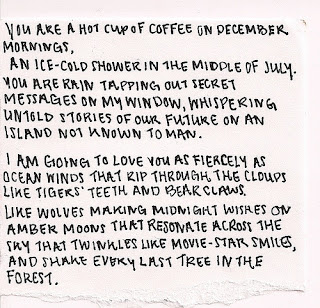 YOU ARE A HOT CUP OF COFFEE ON DECEMBER
MORNINGS,
AN ICE-COLD SHOWER IN THE MIDDLE OF JULY.
YOU ARE RAIN TAPPING OUT SECRET
MESSAGES ON MY WINDOW, WHISPERING
UNTOLD STORIES OF OUR FUTURE ON AN
ISLAND NOT KNOWN TO MAN.
I AM GOING TO LOVE YOU AS FIERCELY AS
OCEAN WINDS THAT RIP THROUGH THE CLOUDS
LIKE TIGERS' TEETH AND BEAR CLAWS.
LIKE WOLVES MAKING MIDNIGHT WISHES ON
AMBER MOONS THAT RESONATE ACROSS THE
SKY THAT TWINKLES LIKE MOVIE-STAR SMILES,
AND SHAKE EVERY LAST TREE IN THE
FOREST.